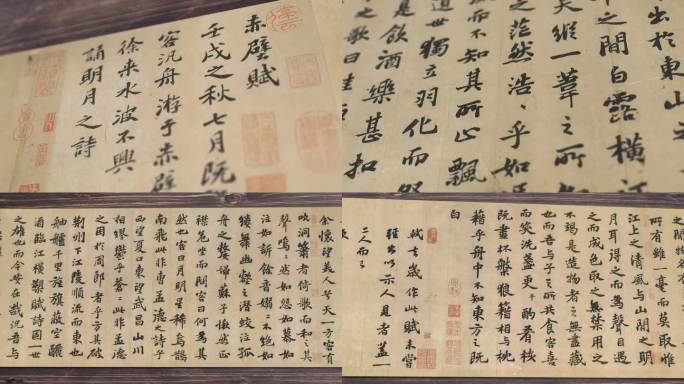 赤壁賦
壬戌之秋七月既
客汎舟游于赤壁
徐来水波不興
誦明月之詩
出於東山之
之間白露橫江
縱一葦之所
之茫然浩、乎如
而不知其所止飄
世獨立羽化而
是飲酒樂甚扣
之歌曰
余懷望美人兮天一方客有
吹洞簫者倚歌而和之其
聲嗚、然如怨如慕如
泣如訴餘音嫋、不絕如
縷舞幽壑之潛蛟泣孤
舟之嫠婦蘇子愀然正
襟危坐而問客曰何為其
然也客曰月明星稀烏鵲
南飛此非曹孟德之詩乎
西望夏口東望武昌山川
相繆鬱乎蒼、此非孟德
之困於周郎者乎方其破
荊州下江陵順流而東也
舳艫千里旌旗蔽空釃
酒臨江橫槊賦詩固一世
之雄也而今安在哉況吾與
之間物各
所有雖一毫而莫取惟
江上之清風與山間之明
月耳得之而為聲目遇
之而成色取之無禁用之
不竭是造物者之無盡藏
也而吾與子之所共食客喜
而笑洗盞更酌肴核
既盡杯盤狼藉相與枕
藉乎舟中不知東方之既
白
軾去歲作此賦未嘗
輕出以示人見者蓋一
二人而已